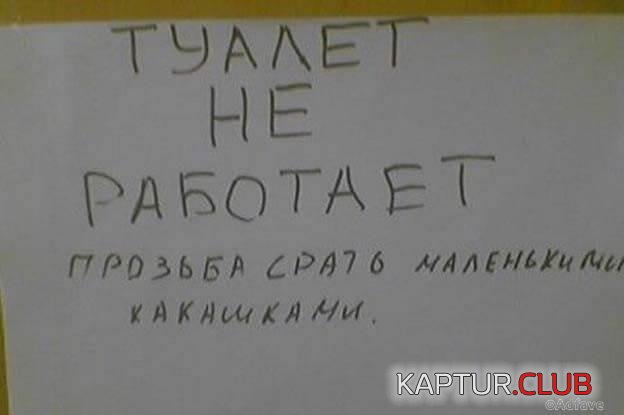 ТУАЛЕТ
НЕ
РАБОТАЕТ
ПРОЗЬБА СРАТЬ МАЛЕНЬКИМИ
КАКАШКАМИ.
KAPTUR.CLUB
©Adfave